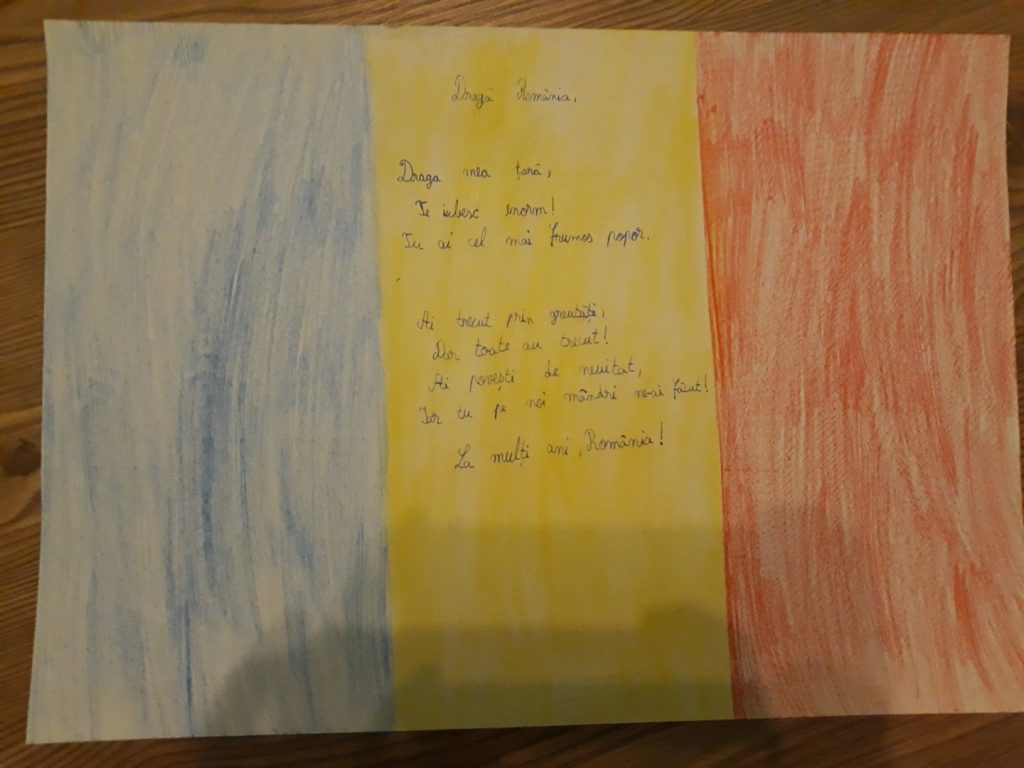 Dragă România,
Draga mea țară,
Te iubesc enorm!
Tu ai cel mai frumos popor.
Ai trecut prin greutăți,
Dar toate au trecut!
Ai povești de neuitat,
Iar tu pe noi mândri ne-ai făcut!
La mulți ani, România!